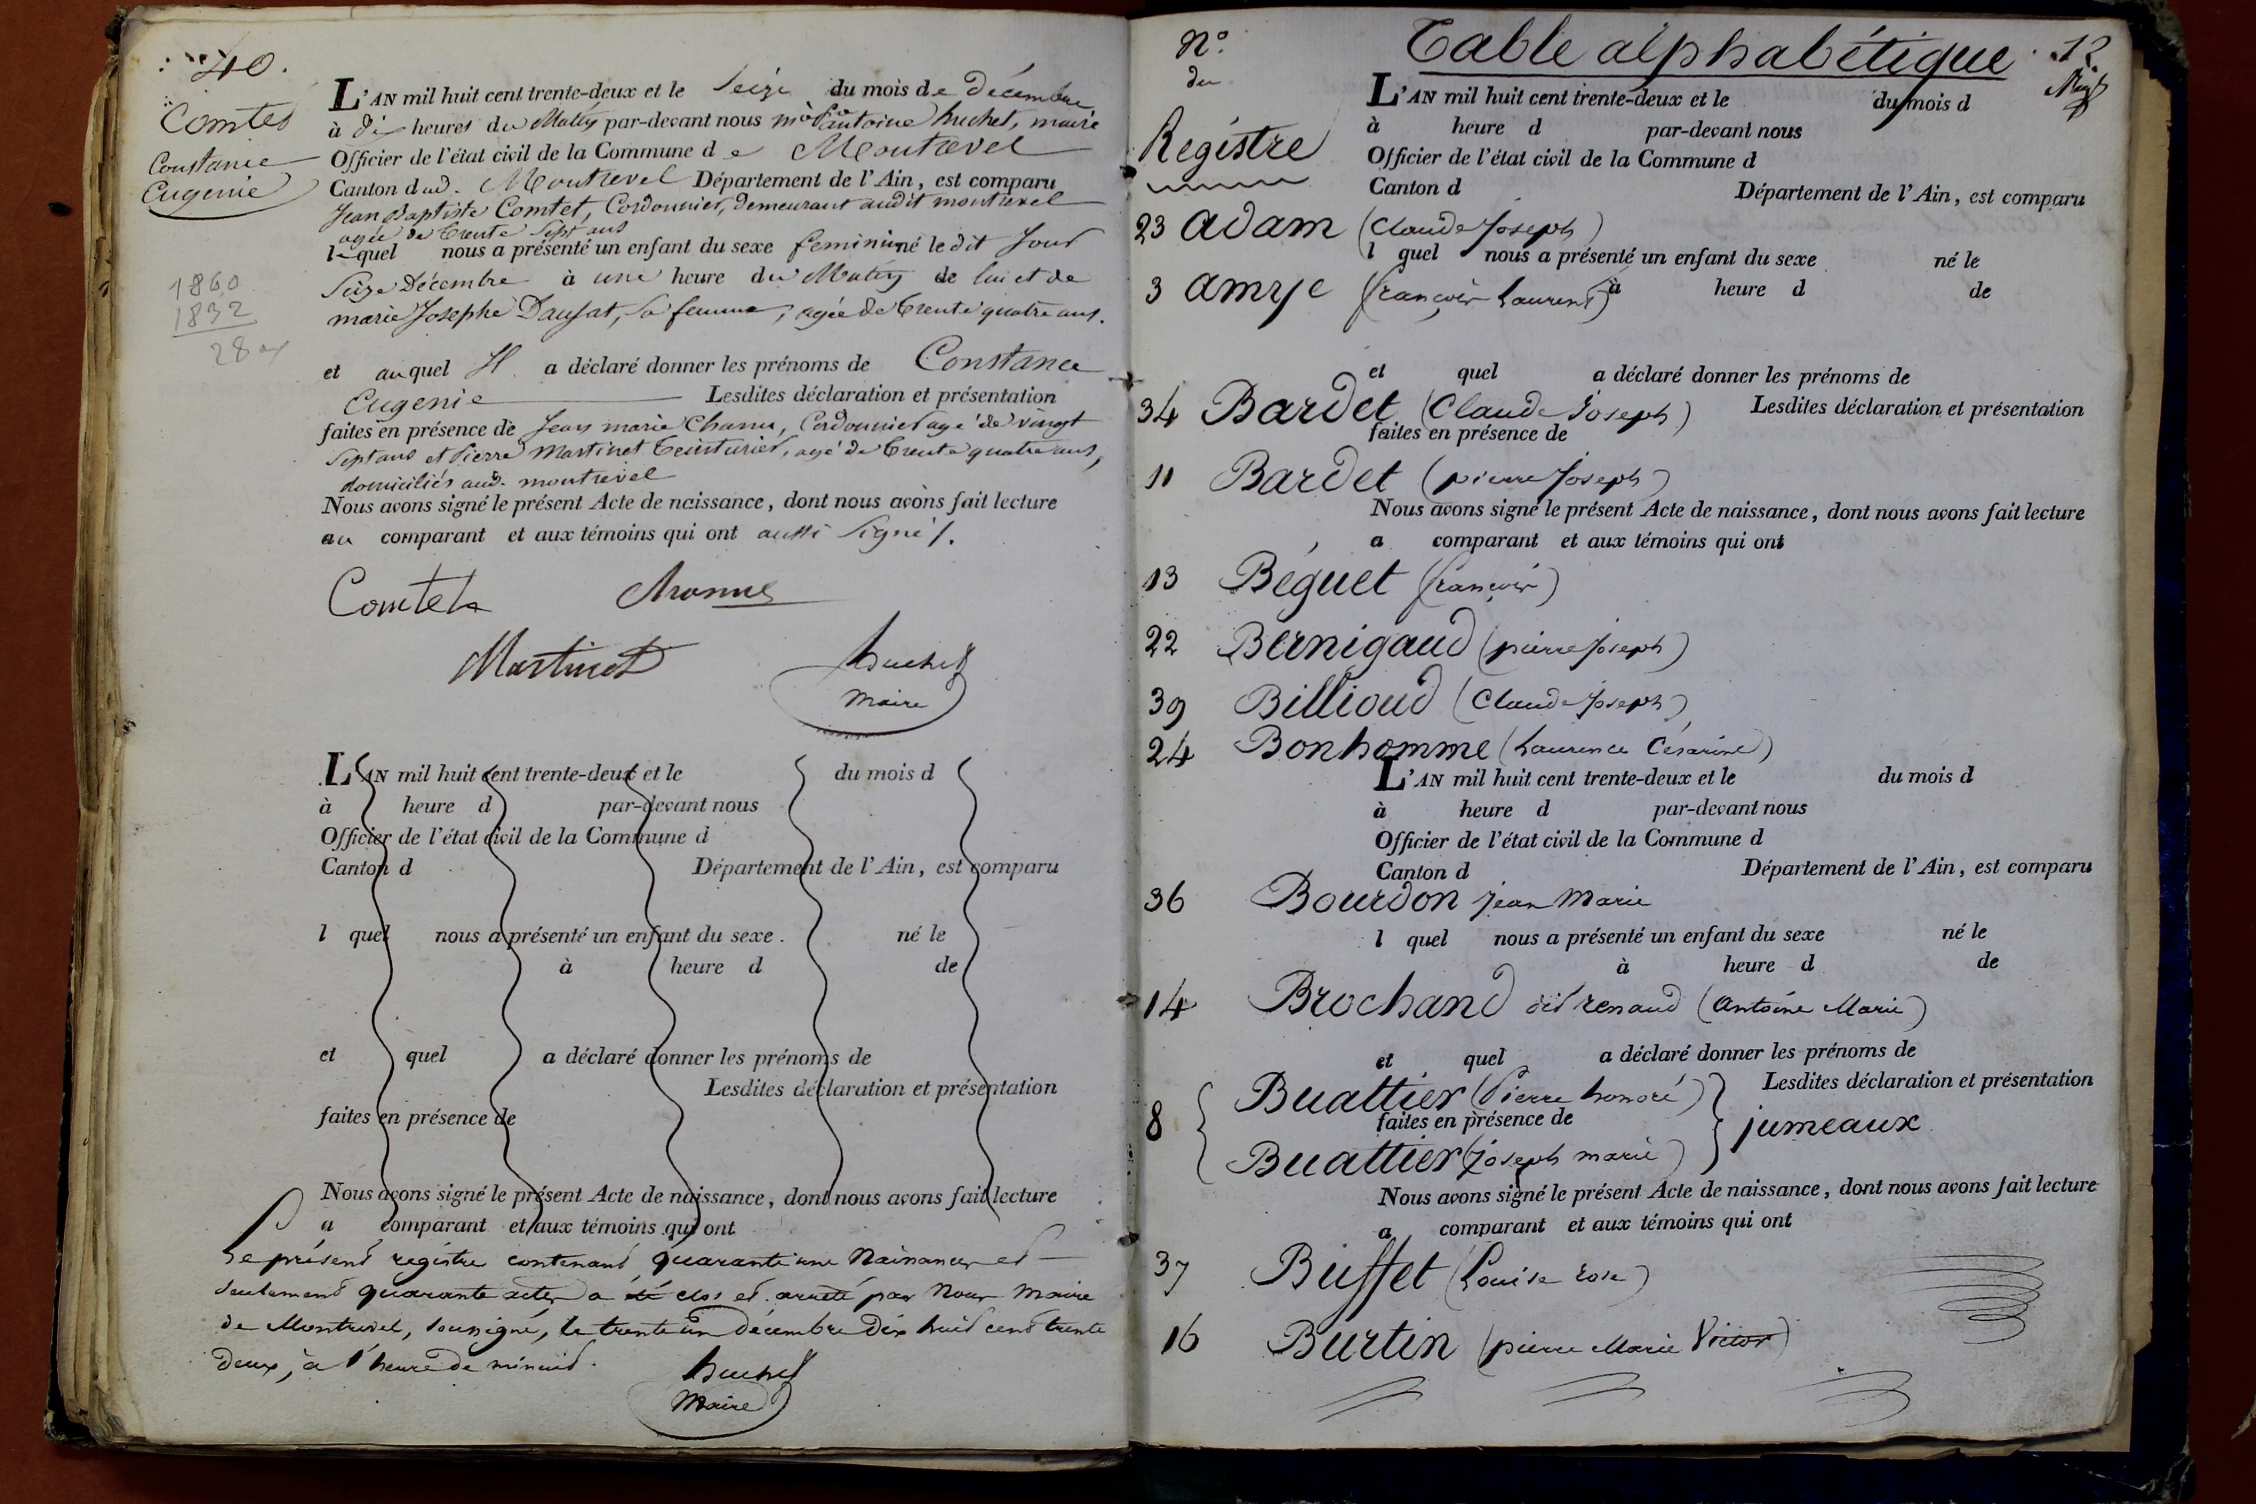 40.
Comtet
Constance
Eugenie
1860
1832
28
L'AN mil huit cent trente-deux et le Seize du mois de décembre
à dix heures du Matin par-devant nous antoine huchet, maire
Officier de l'état civil de la Commune de Montrevel
Canton dud. Montrevel Département de l'Ain, est comparu
Jean Baptiste Comtet, Cordonnier, demeurant audit montrevel
agée de trente sept ans
lequel nous a présenté un enfant du sexe feminin né ledit Jour
Seize Décembre à une heure du Matin de lui et de
marie Josephe Daujat, sa femme, agée de trente quatre ans.
et auquel Il a déclaré donner les prénoms de Constance
Eugenie Lesdites déclaration et présentation
faites en présence de Jean marie Chanu, Cordonnier agé de vingt
sept ans et Pierre Martinet teinturier, agé de trente quatre ans,
domiciliés aud. montrevel
Nous avons signé le présent Acte de naissance, dont nous avons fait lecture
au comparant et aux témoins qui ont aussi Signés.
Comtet
Martinet
huchet
maire
L'AN mil huit cent trente-deux et le du mois d
à heure d par-devant nous
Officier de l'état civil de la Commune d
Canton d Département de l'Ain, est comparu
l quel nous a présenté un enfant du sexe né le
à heure d de
et quel a déclaré donner les prénoms de
Lesdites déclaration et présentation
faites en présence de
Nous avons signé le présent Acte de naissance, dont nous avons fait lecture
a comparant et aux témoins qui ont
Le présent registre contenant quarante une Naissances et
seulement quarante actes a été clos et arrêté par Nous Maire
de Montrevel, soussigné, le trente un décembre dix huit cent trente
deux, à l'heure de minuit.
huchet
Maire
N°
du
Registre
Table alphabétique
12
L'AN mil huit cent trente-deux et le du mois d
à heure d par-devant nous
Officier de l'état civil de la Commune d
Canton d Département de l'Ain, est comparu
23 Adam (Claude Joseph)
l quel nous a présenté un enfant du sexe né le
3 Amye (françois Laurent) à heure d de
et quel a déclaré donner les prénoms de
34 Bardet (Claude Joseph) Lesdites déclaration et présentation
faites en présence de
11 Bardet (pierre Joseph)
Nous avons signé le présent Acte de naissance, dont nous avons fait lecture
a comparant et aux témoins qui ont
13 Béguet (françois)
22 Bernigaud (pierre Joseph)
39 Billioud (Claude Joseph)
24 Bonhomme (Laurence Césarine)
L'AN mil huit cent trente-deux et le du mois d
à heure d par-devant nous
Officier de l'état civil de la Commune d
Canton d Département de l'Ain, est comparu
36 Bourdon jean Marie
l quel nous a présenté un enfant du sexe né le
à heure d de
14 Brochand dit renaud (Antoine Marie)
et quel a déclaré donner les prénoms de
Buattier (Pierre honoré) Lesdites déclaration et présentation
faites en présence de
8 jumeaux
Buattier (Joseph marie)
Nous avons signé le présent Acte de naissance, dont nous avons fait lecture
a comparant et aux témoins qui ont
37 Buffet (Louise rose)
16 Burtin (pierre Marie Victor)